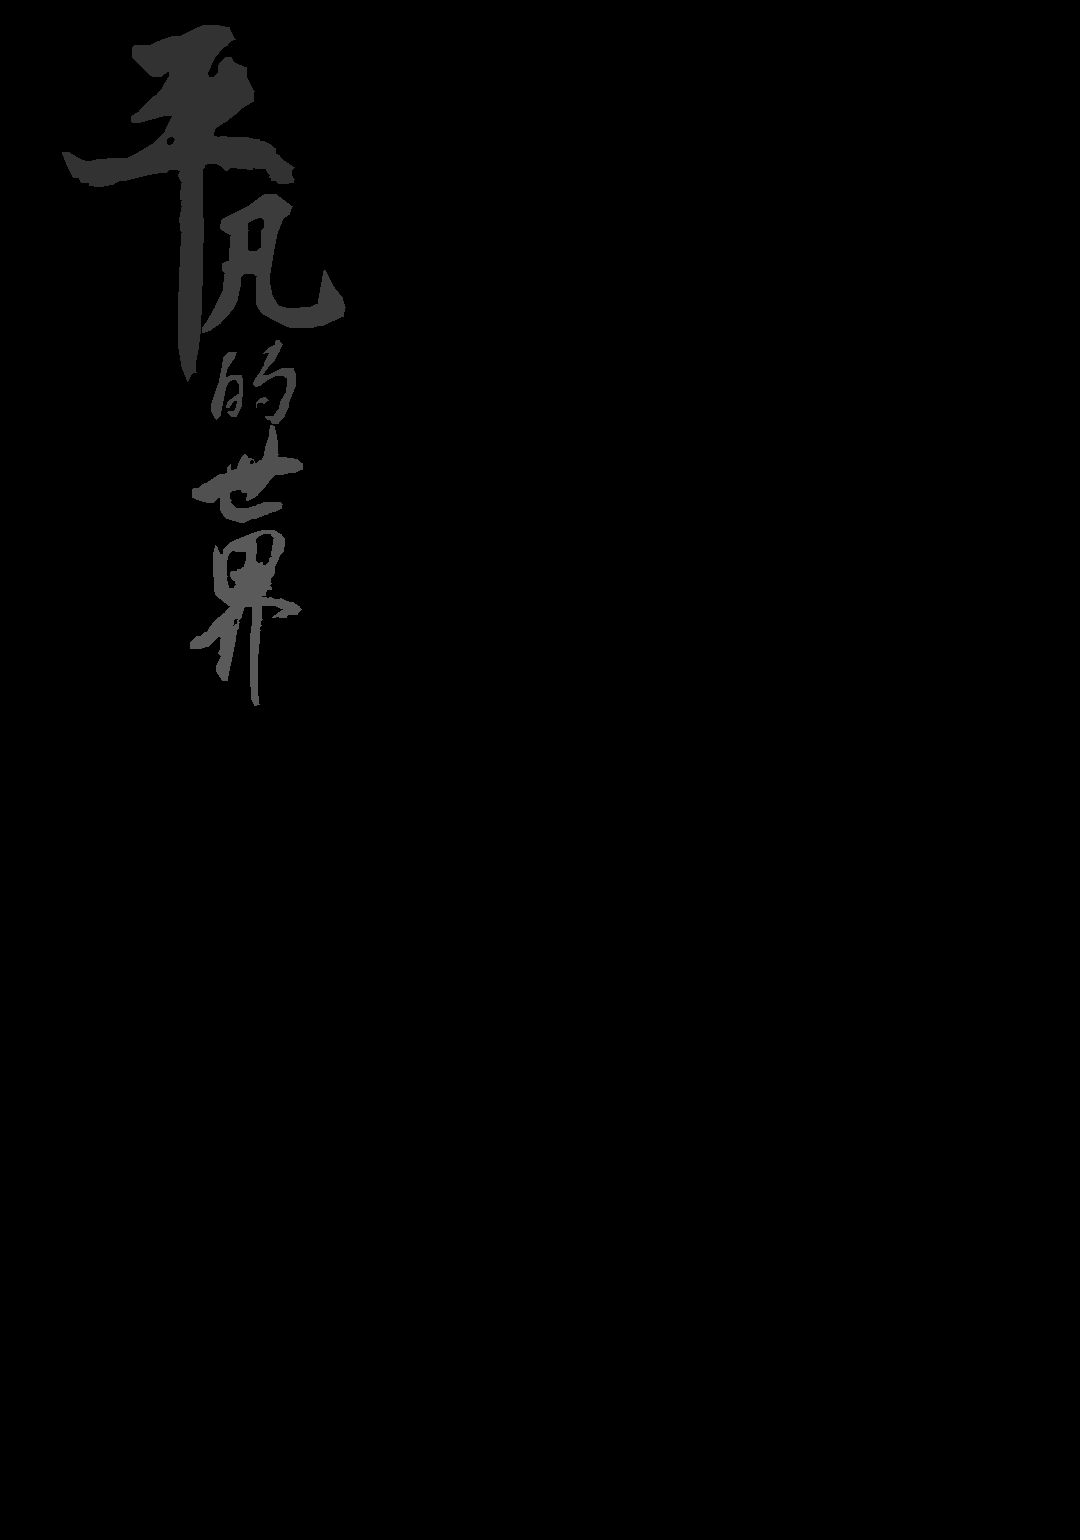 平凡的世界